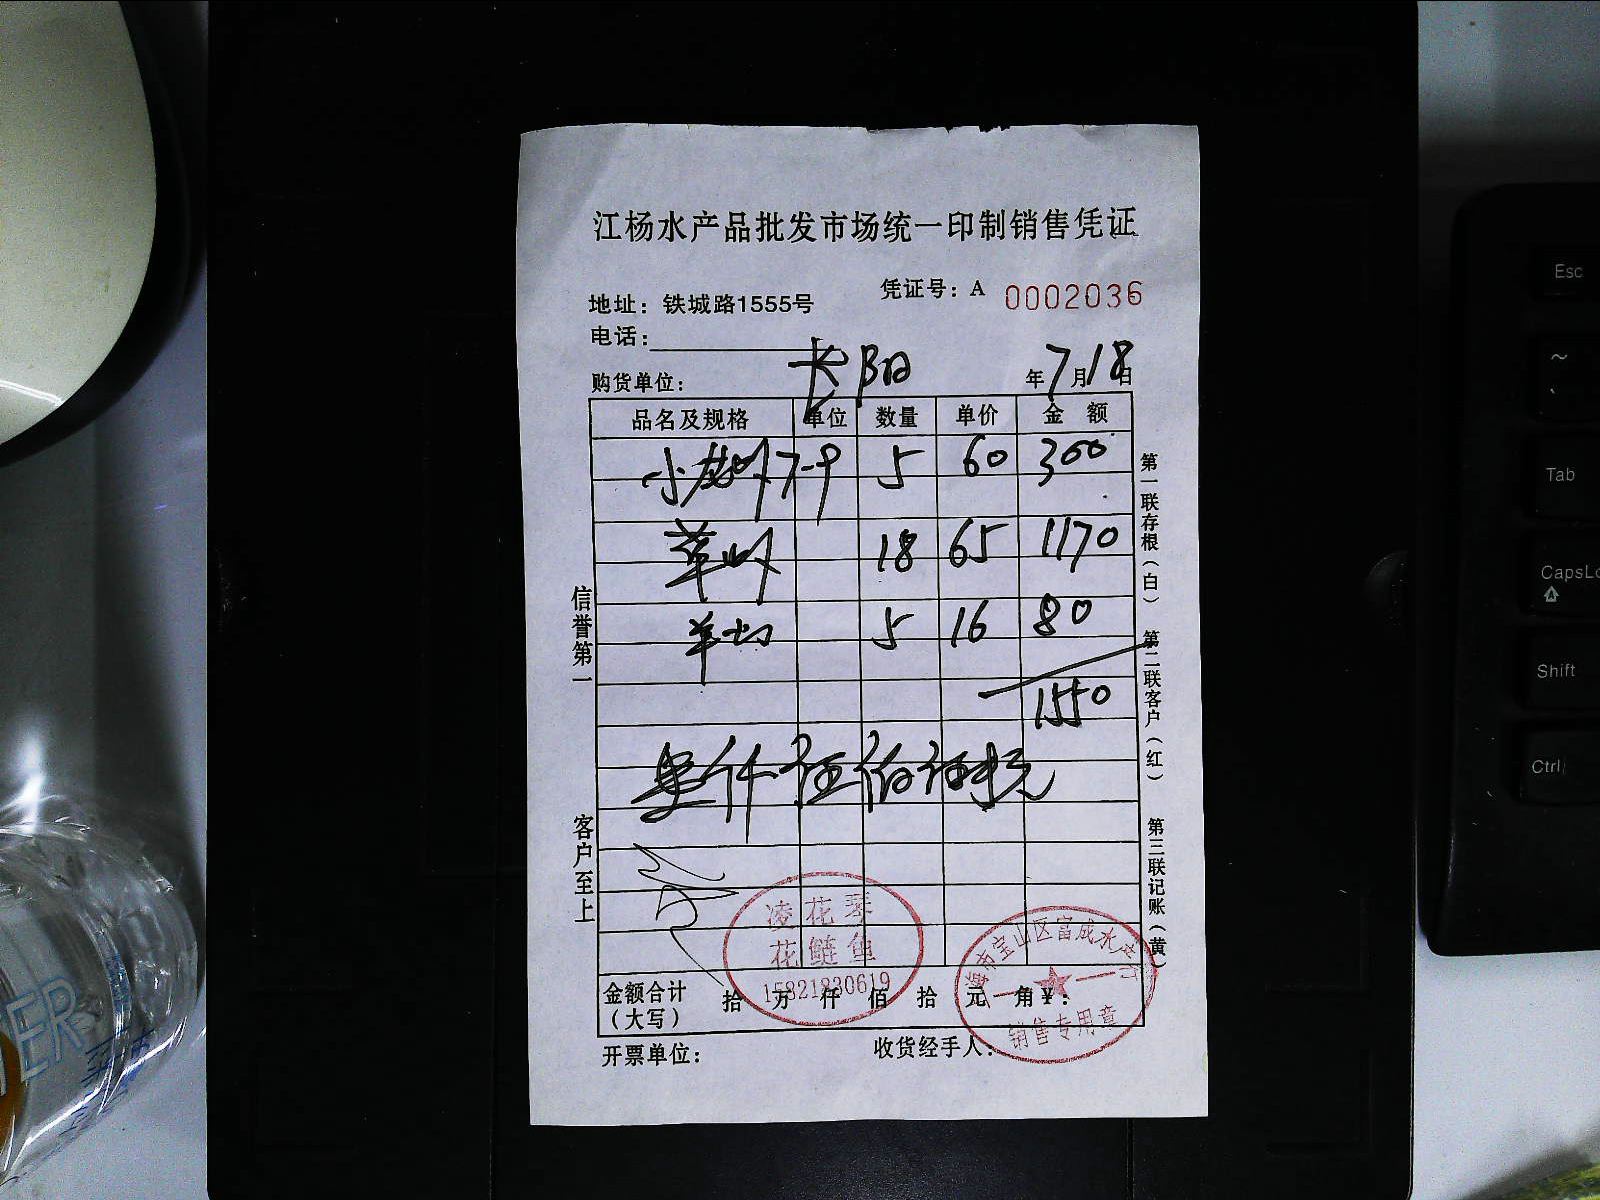 江杨水产品批发市场统一印制销售凭证
凭证号：A 0002036
地址：铁城路1555号
电话：
购货单位： 长阳 年7月18日
品名及规格 单位 数量 单价 金 额
小龙虾 7-9 5 60 300
草虾 18 65 1170
5 16 80
1550
壹仟伍佰伍拾元
凌花琴
花鲢鱼
15821830619
上海市宝山区富成水产行
销售专用章
金额合计（大写） 拾 万 仟 佰 拾 元 角￥：
开票单位： 收货经手人：
信誉第一
客户至上
第一联存根（白）
第二联客户（红）
第三联记账（黄）
Esc
~
`
Tab
CapsLo
Shift
Ctrl
ER